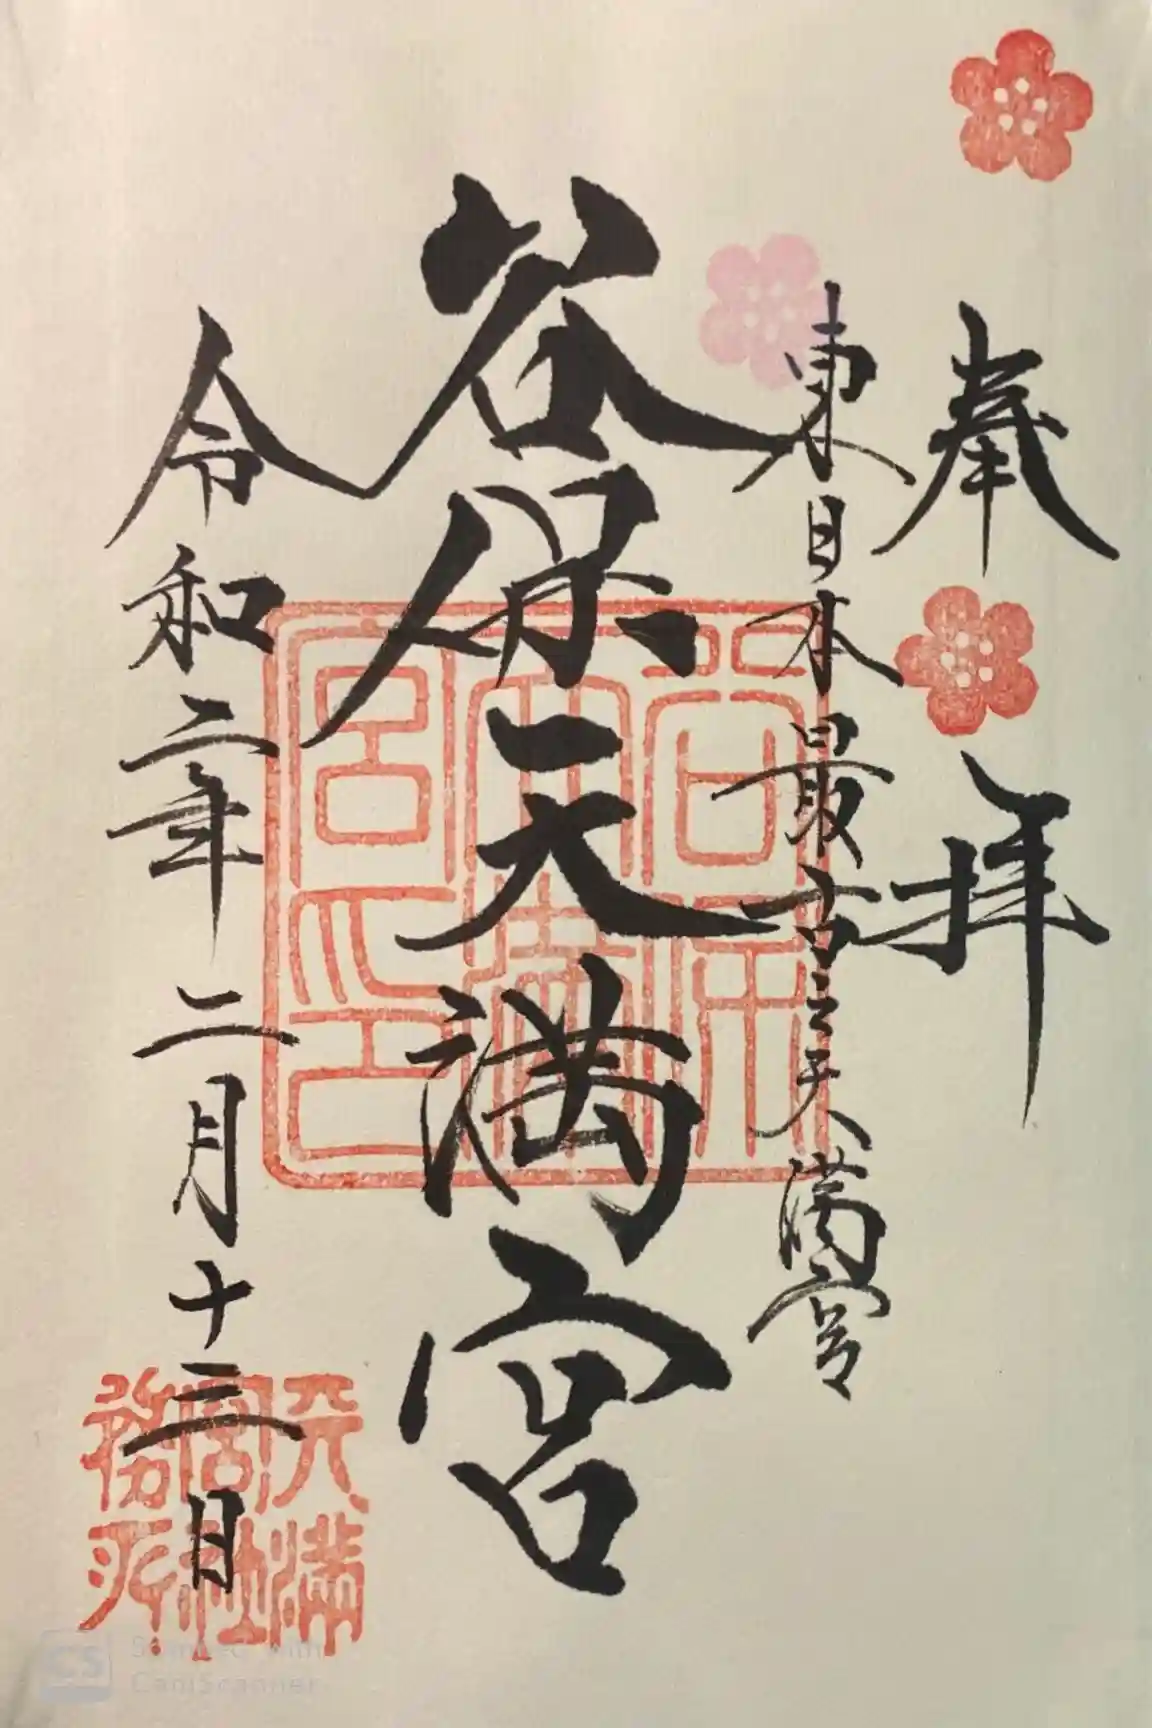 奉拝
東日本最古之天満宮
谷保天満宮
令和二年二月十三日
谷保天満宮印
天満宮社務所
CS Scanned with
CamScanner